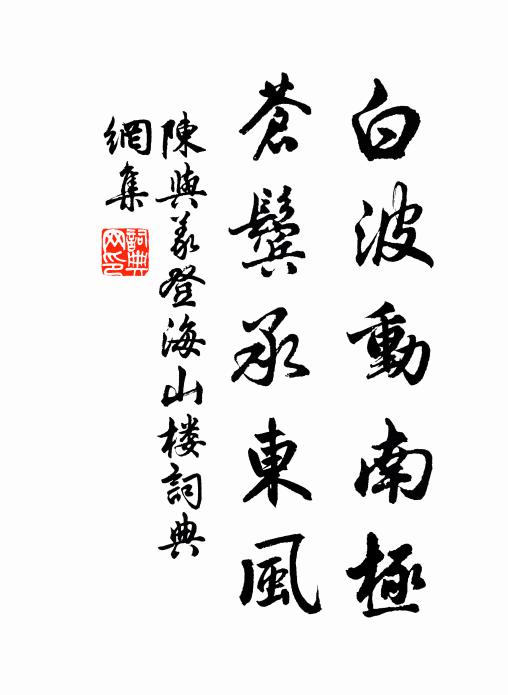 白波動南極
蒼鬢承東風
陳與义登海山楼詞典
網集
詞典
网印